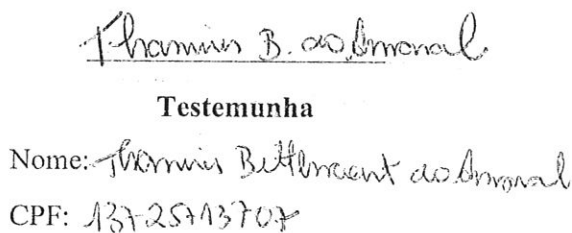 Thamires B. do Amaral
Testemunha
Nome: Thamires Bittencourt do Amaral
CPF: 13725713707